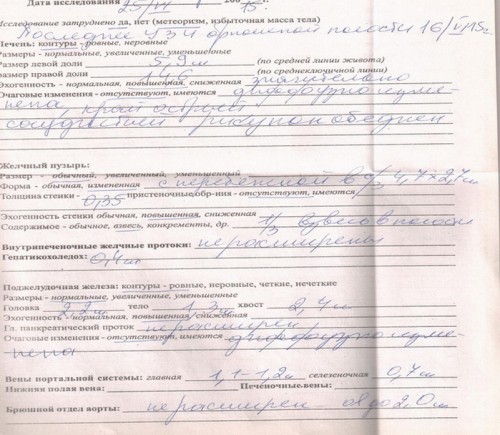 Дата исследования 25/VI 200 15 г.
Исследование затруднено да, нет (метеоризм, избыточная масса тела)
Последнее УЗИ брюшной полости 16/VI 15г.
Печень: контуры - ровные, неровные
Размеры - нормальные, увеличенные, уменьшенные
Размер левой доли 5,9 м (по средней линии живота)
размер правой доли 14,6 (по среднеключичной линии)
Эхогенность - нормальная, повышенная, сниженная значительно
Очаговые изменения - отсутствуют, имеются диффузно изме-
нена, край острый
сосудистый рисунок обеднен
Желчный пузырь:
Размер - обычный, увеличенный, уменьшенный
Форма - обычная, измененная с перетяжкой в с/3 4,7х2,7м
Толщина стенки - 0,35 пристеночные обр-ния - отсутствуют, имеются
Эхогенность стенки обычная, повышенная, сниженная
Содержимое - обычное, взвесь, конкременты, др. 1/3 взвесь в полости
Внутрипеченочные желчные протоки: не расширены
Гепатикохоледох: 0,4 см
Поджелудочная железа: контуры - ровные, неровные, четкие, нечеткие
Размеры - нормальные, увеличенные, уменьшенные
Головка 2,2 м тело 1,3 м хвост 2,4 м
Эхогенность - нормальная, повышенная, сниженная
Гл. панкреатический проток не расширен
Очаговые изменения - отсутствуют, имеются диффузно изме-
нена
Вены портальной системы: главная 1,1-1,2 м селезеночная 0,7 м
Нижняя полая вена: Печеночные вены:
Брюшной отдел аорты: не расширен d до 2,0 м